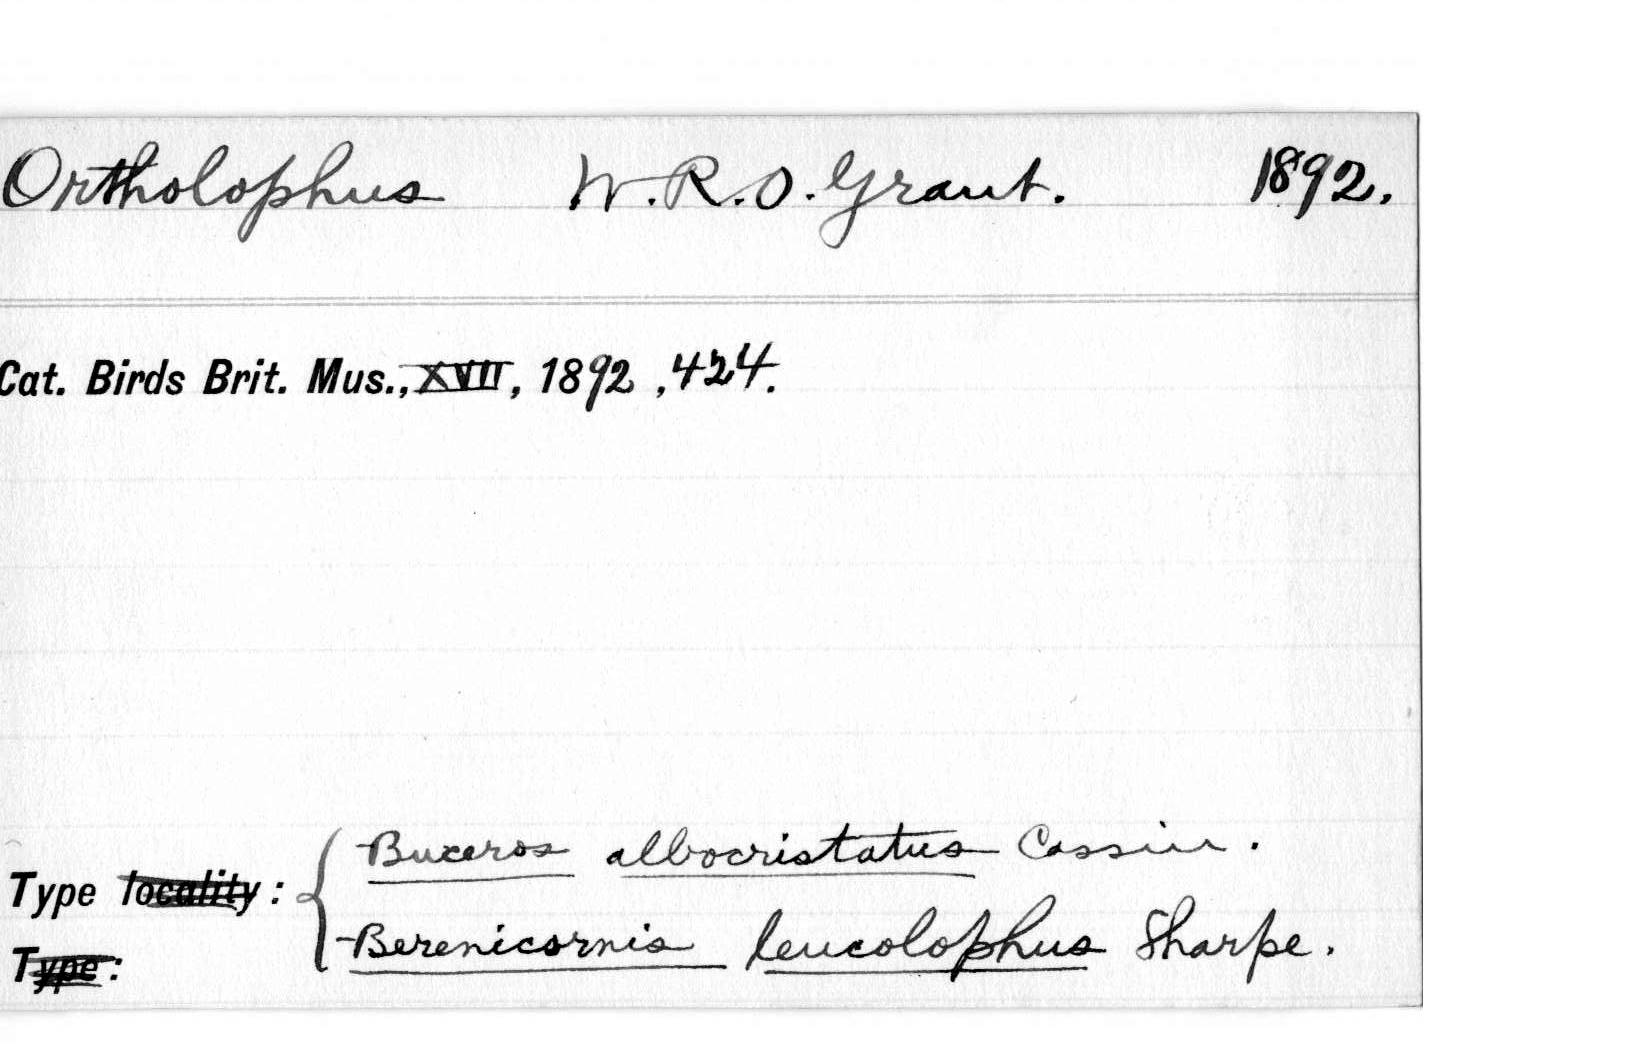 Ortholophus W.R.O. Grant. 1892.
Cat. Birds Brit. Mus., XVII, 1892, 424.
Buceros albocristatus Cassin.
Type locality:
Berenicornis leucolophus Sharpe.
Type: